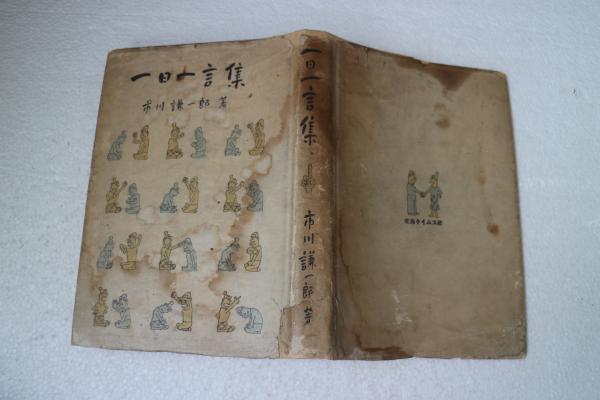 一日一言集
市川謙一郎著
一日一言集
市川謙一郎著